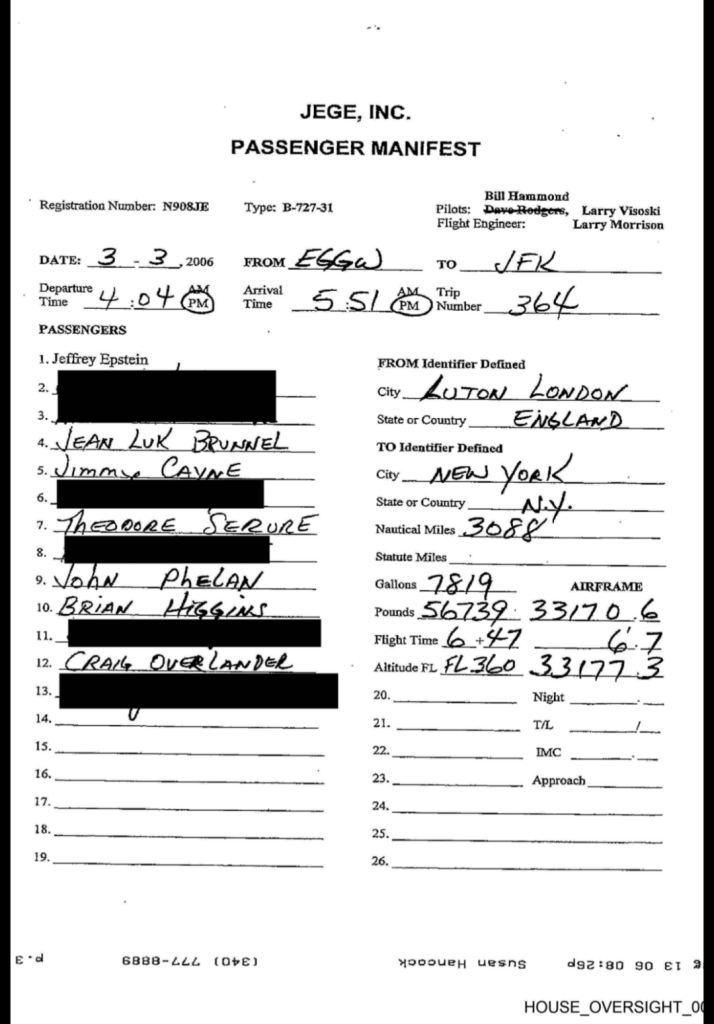 JEGE, INC.
PASSENGER MANIFEST
Bill Hammond
Registration Number: N908JE Type: B-727-31 Pilots: Dave Rodgers, Larry Visoski
Flight Engineer: Larry Morrison
DATE: 3 - 3, 2006 FROM EGGW TO JFK
Departure Time 4:04 AM PM Arrival Time 5:51 AM PM Trip Number 364
PASSENGERS
1. Jeffrey Epstein
2.
3.
4. JEAN LUK BRUNNEL
5. Jimmy CAYNE
6.
7. THEODORE SERURE
8.
9. John PHELAN
10. BRIAN HIGGINS
11.
12. CRAIG OVERLANDER
13.
14.
15.
16.
17.
18.
19.
FROM Identifier Defined
City LUTON LONDON
State or Country ENGLAND
TO Identifier Defined
City NEW YORK
State or Country N.Y.
Nautical Miles 3088
Statute Miles
Gallons 7819 AIRFRAME
Pounds 56739 33170.6
Flight Time 6+47 6.7
Altitude FL FL360 33177.3
20. Night
21. T/L /
22. IMC
23. Approach
24.
25.
26.
13 06 08:26p Susan Hancock (340) 777-8889 p.3
HOUSE_OVERSIGHT_00